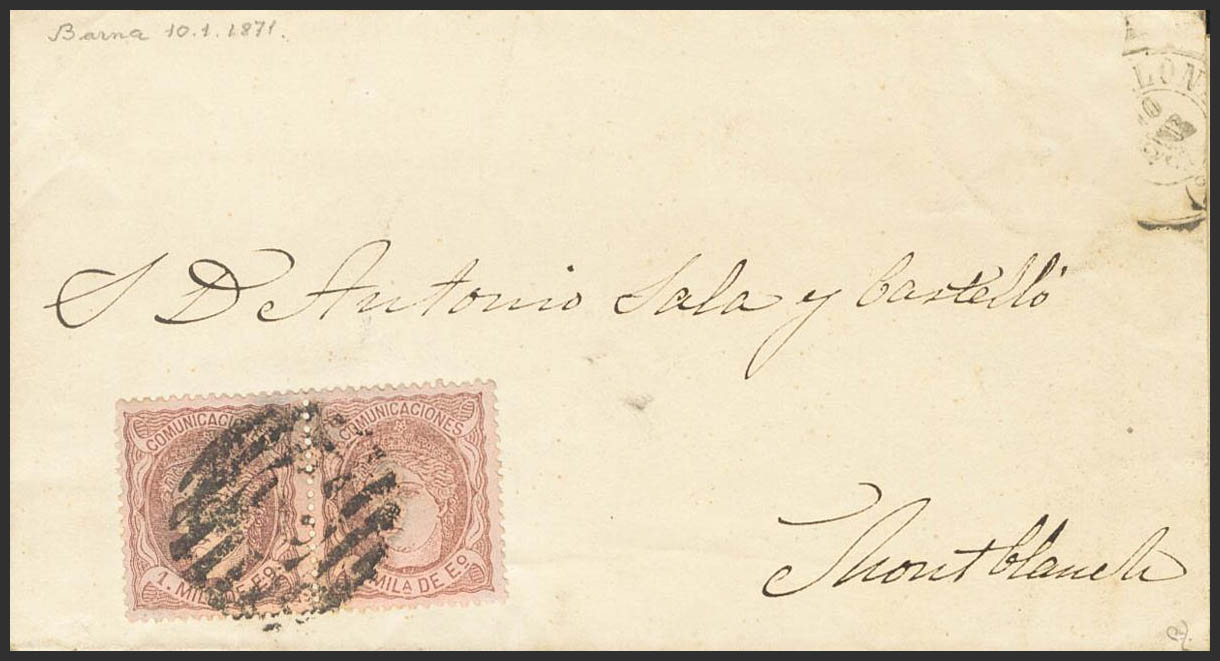 Barna 10.1.1871.
LON
10
S D Antonio Sala y Castelló
COMUNICAC COMUNICACIONES
1. MILA DE Eº MILA DE Eº
Montblanch